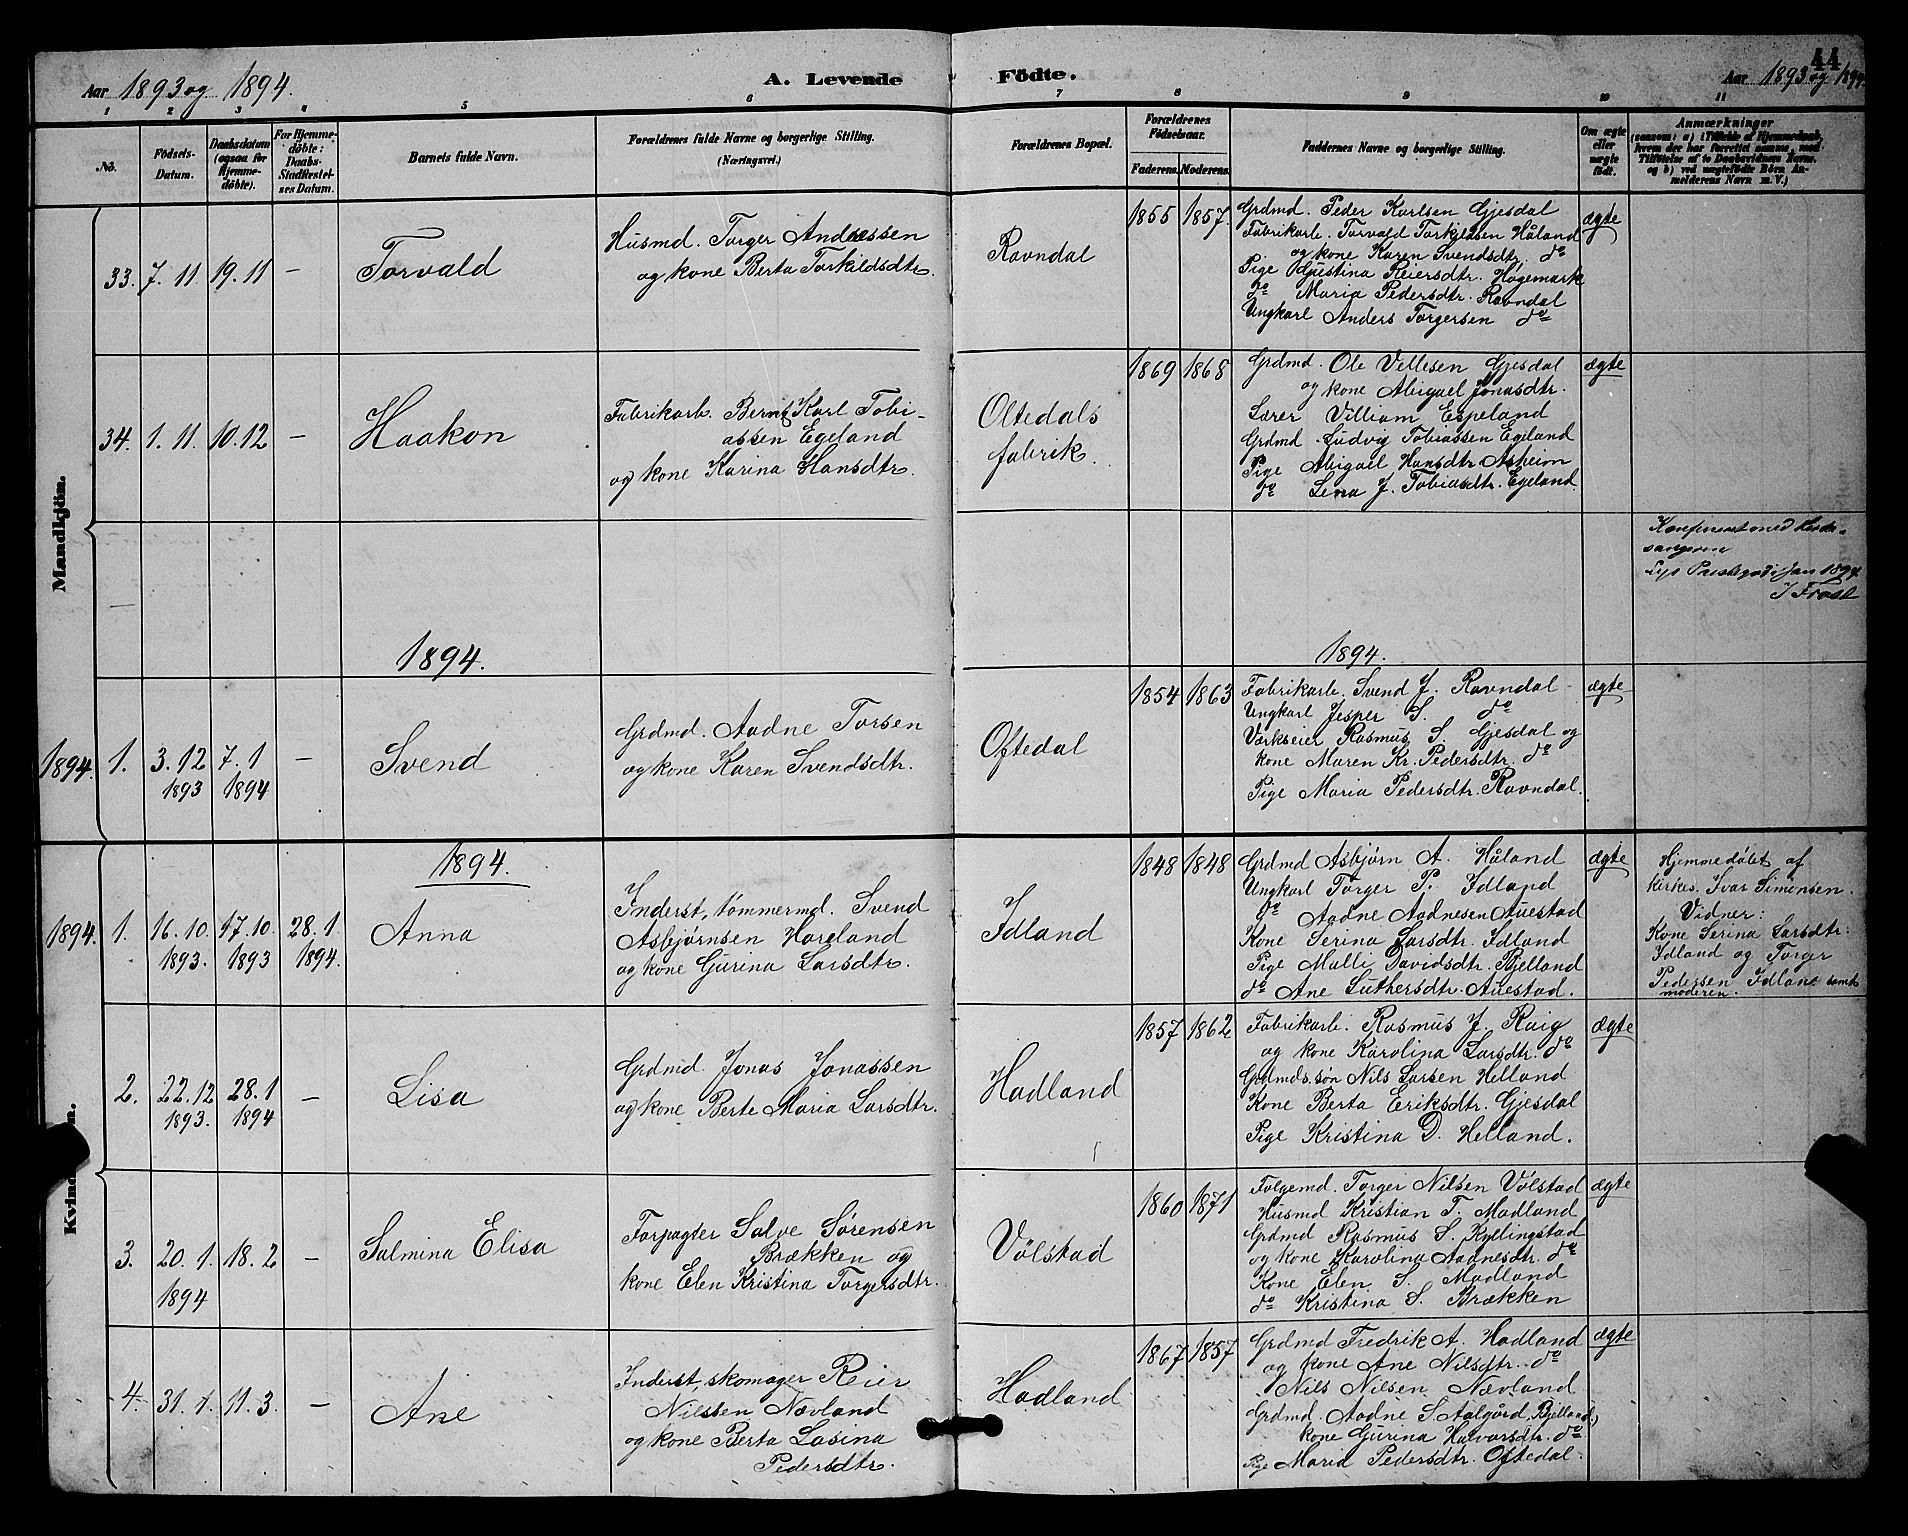 44
Aar 1893 og 1894.
A. Levende Födte.
Aar 1893 og 1894
1 2 3 4 5 6 7 8 9 10 11
No.
Födsels-Datum.
Daabsdatum (ogsaa for Hjemmedöbte).
For Hjemmedöbte: Daabs Stadfæstelses Datum.
Barnets fulde Navn.
Forældrenes fulde Navne og borgerlige Stilling. (Næringsvei.)
Forældrenes Bopæl.
Forældrenes Födselsaar.
Faderens. Moderens.
Faddernes Navne og borgerlige Stilling.
Om ægte eller uægte födt.
Anmærkninger
(saasom: a) i Tilfælde af Hjemmedaab,
hvem der har forrettet samme, med
Tilföielse af to Daabsvidners Navne.
og b) ved uægtefödte Börn An-
melderens Navn m. V.)
Mandkjön.
33. 7. 11. 19. 11 –
Torvald
Husmd. Torger Andressen
og kone Berta Torkildsdtr.
Ravndal
1855 1857.
Grdmd. Peder Karlsen Gjesdal
Fabrikarb. Torvald Torkildsen Håland
og kone Karen Svendsdtr. do
Pige Gjustina Reiersdtr. Høgemark
do Maria Pedersdtr. Ravndal
Ungkarl Anders Torgersen do
ægte
34. 1. 11. 10. 12 –
Haakon
Fabrikarb. Bernt Karl Tobi-
assen Egeland
og kone Karina Hansdtr.
Oltedals
fabrik.
1869 1868
Grdmd. Ole Vellesen Gjesdal
og kone Abigael Jonasdtr.
Lærer Villiam Espeland
Grdmd. Ludvig Tobiassen Egeland
Pige Abigael Hansdtr. Asheim
do Lena J. Tobiasdtr. Egeland.
ægte
Konfereret med Kirke-
sangeren
Lye Prestegd i Jan 1894
J Frost
1894.
1894.
1894. 1. 3. 12 1893 7. 1 1894 –
Svend
Grdmd. Aadne Torsen
og kone Karen Svendsdtr.
Oftedal
1854 1863
Fabrikarb. Svend J. Ravndal
Ungkarl Jesper S. do
Værkseier Rasmus S. Gjesdal og
kone Maren Kr. Pedersdtr. do
Pige Maria Pedersdtr. Ravndal.
ægte
Kvind
n.
1894.
1894. 1. 16. 10. 1893. 17. 10 1893 28. 1 1894.
Anna
Inderst, tømmermd. Svend
Asbjørnsen Hareland
og kone Gurina Larsdtr.
Idland
1848 1848
Grdmd Asbjørn A. Håland
Ungkarl Torger P. Idland
do Aadne Aadnesen Auestad
Kone Serina Larsdtr. Idland
Pige Malli Davidsdtr. Bjelland
do Ane Luthersdtr. Auestad.
ægte
Hjemmedøbt af
Kirkes. Ivar Simonsen.
Vidner:
Kone Serina Larsdtr:
Idland og Torger
Pedersen Idland samt
moderen.
2. 22. 12 1893. 28. 1 1894 –
Lisa
Grdmd. Jonas Jonassen
og kone Berte Maria Larsdtr.
Hadland
1857 1862
Fabrikarb. Rasmus J. Raig
og kone Karolina Larsdtr. do
Grdmds. søn Nils Larsen Helland
Kone Berta Eriksdtr. Gjesdal
Pige Kristina D. Helland.
ægte
3. 20. 1. 1894 18. 2 –
Salmina Elisa
Forpagter Salve Sørensen
Brækken og
kone Elen Kristina Torgersdtr.
Vølstad
1860 1871
Folgemd. Torger Nilsen Vølstad
Husmd Kristian T. Madland
Grdmd Rasmus S. Kyllingstad
og kone Karolina Aadnesdtr. do
Kone Elen S. Madland
do Kristina S. Brækken
ægte
4. 31. 1. 11. 3. –
Ane
Inderst, skomager Reier
Nilssen Nævland
og kone Berta Lasina
Pedersdtr.
Hadland
1867 1857
Grdmd Fredrik A. Hadland
og kone Ane Nilsdtr. do
Nils Nilsen Nævland
Grdmd. Aadne S. Aalgård, Bjelland,
kone Gurina Halvarsdtr. do
Pige Maria Pedersdtr. Oftedal.
ægte